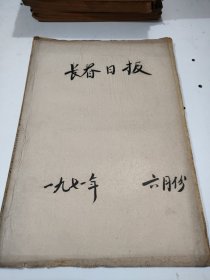 长春日报
一九七一年 六月份